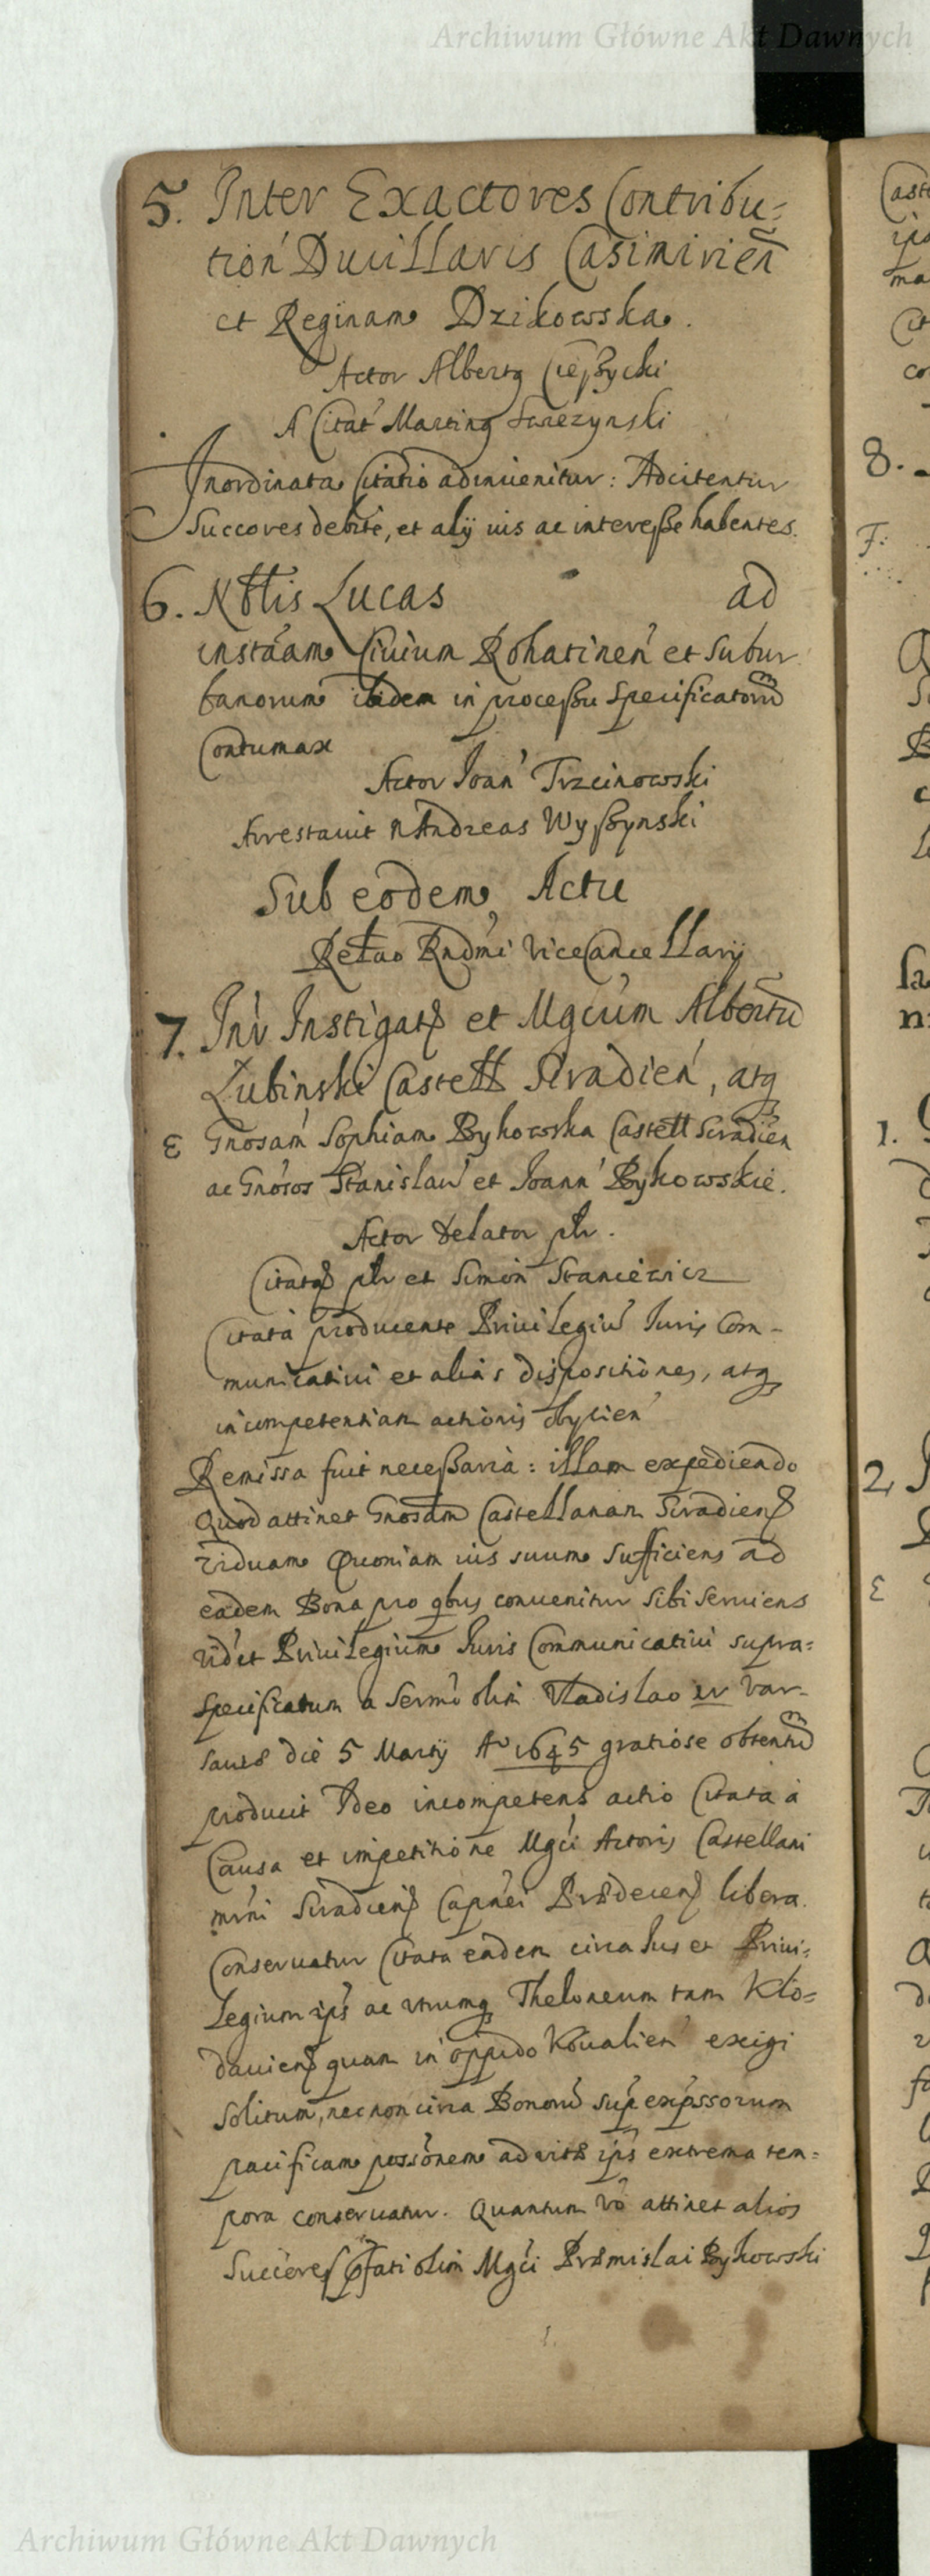 Archiwum Główne Akt Dawnych
5. Inter Exactores Contribu=
tion Ducillaris Casimirien
et Reginam Dzikowska.
Actor Albertq Cieszycki
A Citat Martinq
Inordinata Citatio adinuenitur: Adcitentur
Succores debite, et alÿ ius ac interesse habentes.
6. Nbtlis Lucas ad
instaam Ciuium Rohatinen et Subur
banorum ibidem in processu specificatorum
Contumax
Actor Ioan Trzcinowski
Arrestauit N Andreas Wyszynski
Sub eodem Actu
Relao Rndmi ViceCancellarÿ
7. Inr Instigat et Mgcum Albertu
Lubinski Castell Siradien, atq
ε Gnosam Sophiam Bykowska Castell Siradien
ac Gnosos Stanislaw et Ioann Bykowskie.
Actor Delator plr.
Citat plr et Simon Stancewicz
Citata producente Priuilegiu Iuris Com-
municatiui et alias dispositiones, atq
incompetentiam actionis
Remissa fuit necessaria: illam expediendo
Quod attinet Gnosam Castellanam Siradien
viduam Quoniam ius suum sufficiens ad
eadem Bona pro qbus conuenitur sibi seruiens
videt Priuilegium Iuris Communicatiui supra=
specificatum a Sermo olim Vladislao IV Var-
sauiae die 5 Martÿ Ao 1645 gratiose obtentum
producit Ideo incompetens actio Citata a
Causa et impetitione Mgci Actoris Castellani
mrni Siradien Capnei libera
Conseruatur Citata eadem circa Ius et Priui=
legium ips ac utrumq Theloneum tam Klo=
dauien quam in oppido Koualien exigi
solitum, nec non circa Bonoru sup expssorum
pacificam possonem ad vitae ips extrema tem=
pora conseruatur. Quantum vo attinet alios
Succores pfati olim Mgci Praemislai Bykowski
Archiwum Główne Akt Dawnych